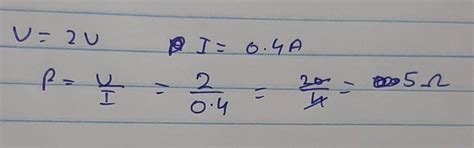 V = 2V I = 0.4A
R = V/I = 2/0.4 = 20/4 = 5Ω